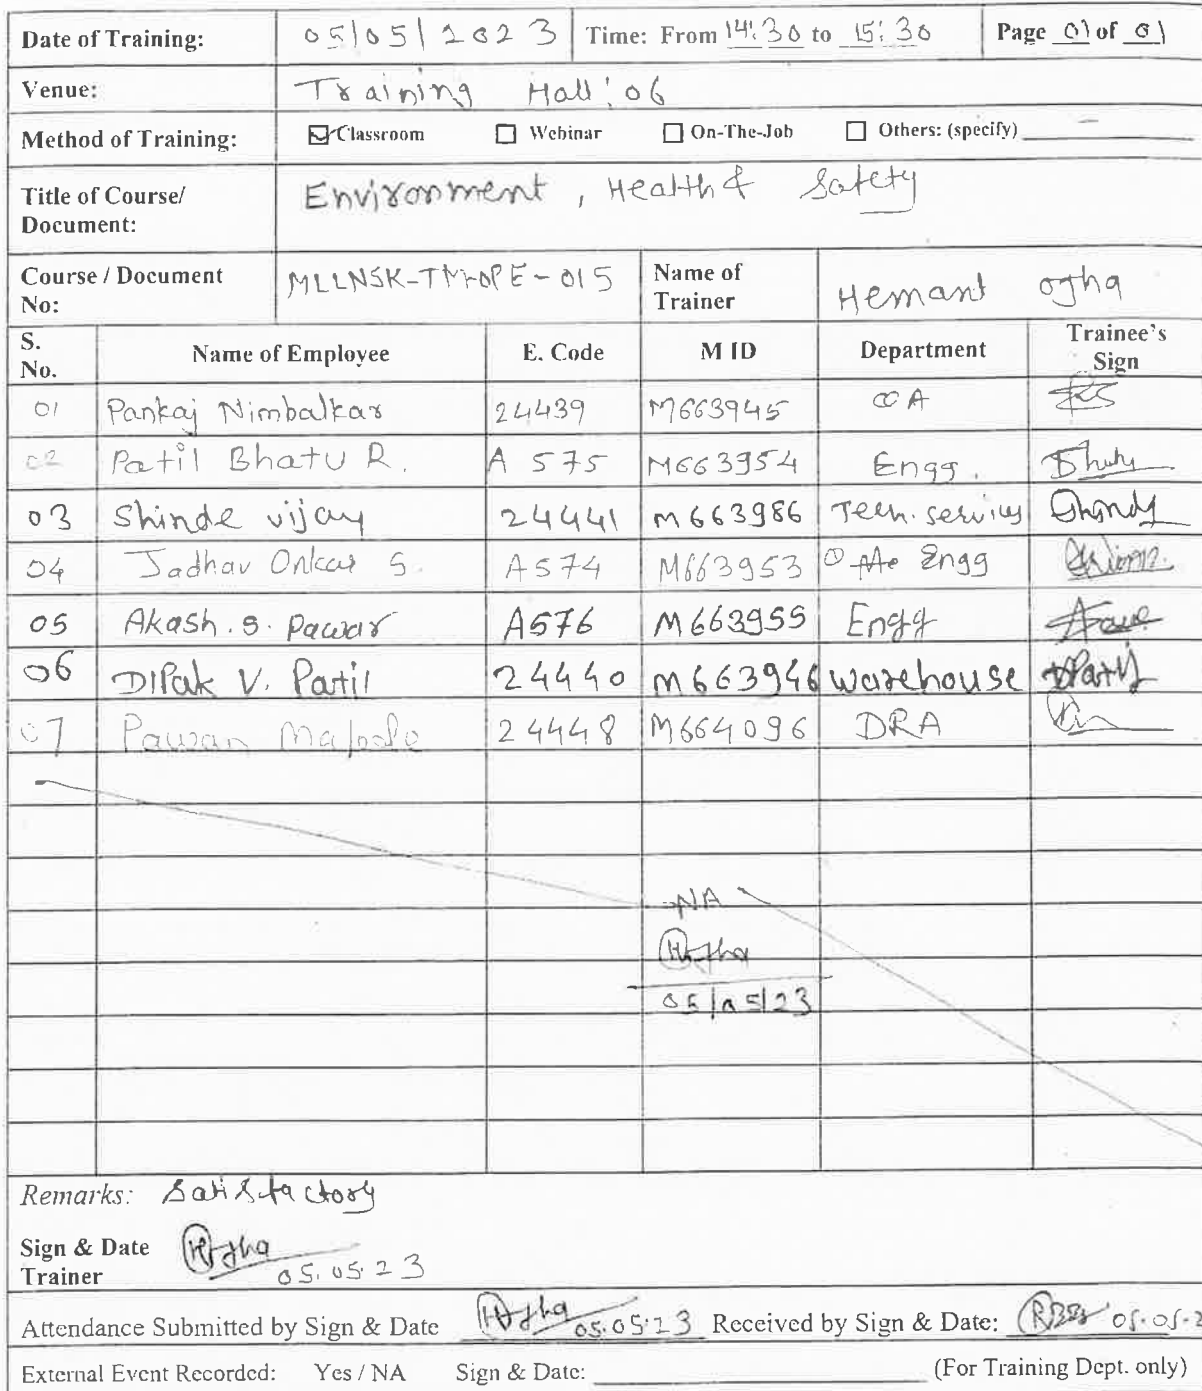 Date of Training: 05/05/2023 Time: From 14:30 to 15:30 Page 01 of 01
Venue: Training Hall: 06
Method of Training: Classroom Webinar On-The-Job Others: (specify)
Title of Course/ Environment, Health & Safety
Document:
Course / Document MLLNSK- -015 Name of Hemant Ojha
No: Trainer
S. Name of Employee E. Code M ID Department Trainee's
No. Sign
01 Pankaj Nimbalkar 24439 M663945 QA
02 Patil Bhatu R. A 575 M663954 Engg.
03 Shinde vijay 24441 M663986 Tech. services
04 Jadhav Onkar S. A574 M663953 Engg
05 Akash. S. Pawar A576 M663955 Engg
06 Dipak V. Patil 24440 M663946 Warehouse DPatil
07 Pawan 24448 M664096 DRA
NA
HOjha
05/05/23
Remarks: Satisfactory
Sign & Date HOjha
Trainer 05.05.23
Attendance Submitted by Sign & Date HOjha 05.05.23 Received by Sign & Date: 05.05.2
External Event Recorded: Yes / NA Sign & Date: (For Training Dept. only)